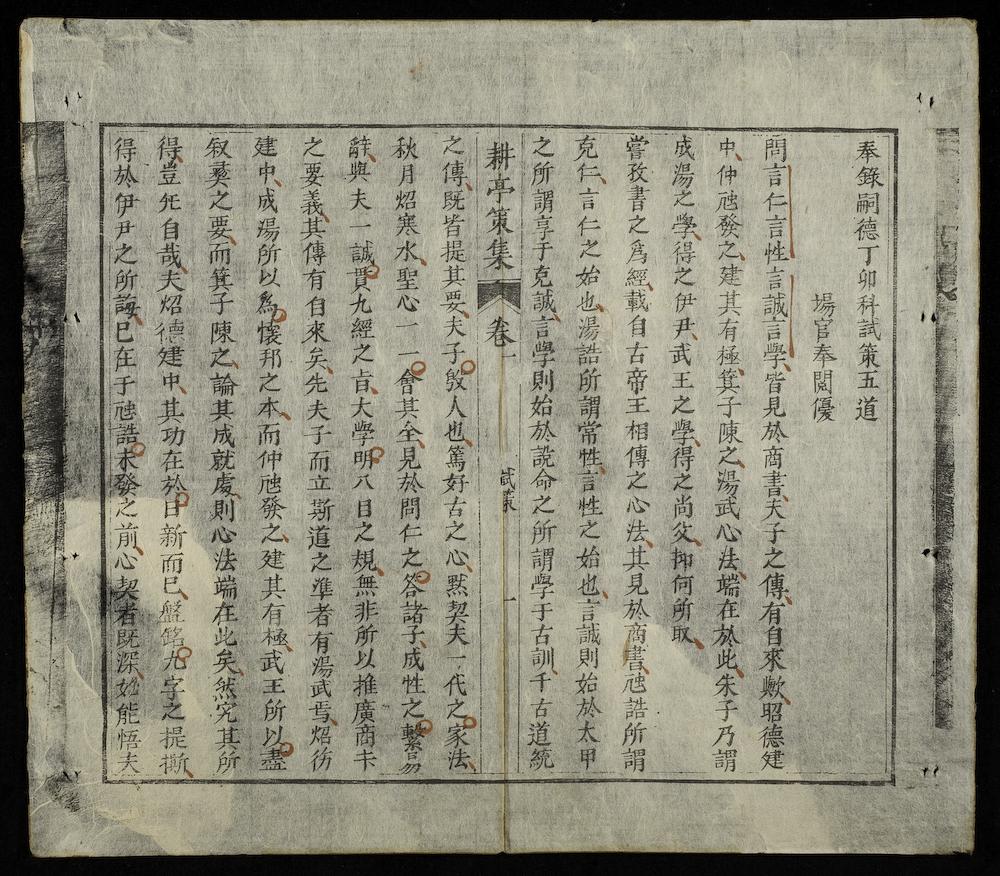 奉錄嗣德丁卯科試策五道
場官奉閱優
問言仁言性言誠言學皆見於商書夫子之傳有自來歟昭德建
中仲虺發之建其有極箕子陳之湯武心法端在於此朱子乃謂
成湯之學得之伊尹武王之學得之尚父抑何所取
嘗孜書之爲經載自古帝王相傳之心法其見於商書虺誥所謂
克仁言仁之始也湯誥所謂常性言性之始也言誠則始於太甲
之所謂享于克誠言學則始於說命之所謂學于古訓千古道統
耕亭策集
卷一
試策
一
之傳既皆提其要夫子殷人也篤好古之心默契夫一代之家法
秋月炤寒水聖心一一會其全見於問仁之答諸子成性之繫易
辭與夫一誠貫九經之旨大學明八目之規無非所以推廣商书
之要義其傳有自來矣先夫子而立斯道之準者有湯武焉炤彷
建中成湯所以爲懷邦之本而仲虺發之建其有極武王所以盡
叙彜之要而箕子陳之論其成就處則心法端在此矣然究其所
得豈兂自哉夫炤德建中其功在於日新而已盤銘九字之提撕
得於伊尹之所誨已在于虺誥未發之前心契者既深始能悟夫